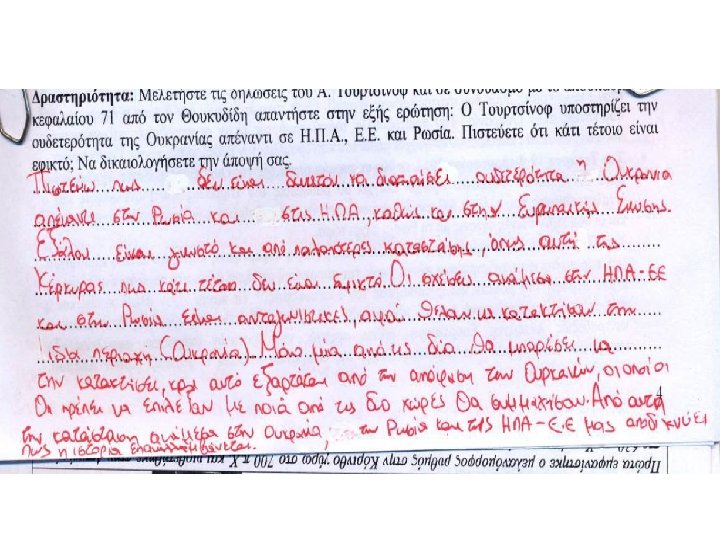 Δραστηριότητα: Μελετήστε τις δηλώσεις του Α. Τουρτσίνοφ και σε συνδυασμό με το
κεφαλαίου 71 από τον Θουκυδίδη απαντήστε στην εξής ερώτηση: Ο Τουρτσίνοφ υποστηρίζει την
ουδετερότητα της Ουκρανίας απέναντι σε Η.Π.Α., Ε.Ε. και Ρωσία. Πιστεύετε ότι κάτι τέτοιο είναι
εφικτό; Να δικαιολογήσετε την άποψή σας.
Πιστεύω πως δεν είναι δυνατον να διατηρήσει ουδετερότητα η Ουκρανία
απέναντι στην Ρωσία και στις ΗΠΑ, καθώς και στην Ευρωπαϊκής Ένωσης.
Εξάλλου είναι γνωστό και από παλαιότερες καταστάσης, όπως αυτή της
Κέρκυρας πως κάτι τέτοιο δεν είναι εφικτό. Οι σχέσεις ανάμεσα στην ΗΠΑ-ΕΕ
και στην Ρωσία είναι ανταγωνιστικές, αφού θέλουν να κατακτήσουν την
ίδια περιοχή (Ουκρανία). Μόνο μία από τις δύο θα μπορέσει να
την κατακτήσει, και αυτό εξαρτάται από την απόφαση των Ουκρανών, οι οποίοι
θα πρέπει να επιλέξουν με ποιά από τις δύο χώρες θα συμμαχήσουν. Από αυτή
την κατάσταση ανάμεσα στην Ουκρανία, την Ρωσία και της ΗΠΑ-Ε.Ε μας αποδικνύει
πως η ιστορία επαναλαμβάνεται.
Πρώτα εμφανίστηκε ο μελανόμορφος ρυθμός στην Κόρινθο γύρω στο 700 π.Χ. και